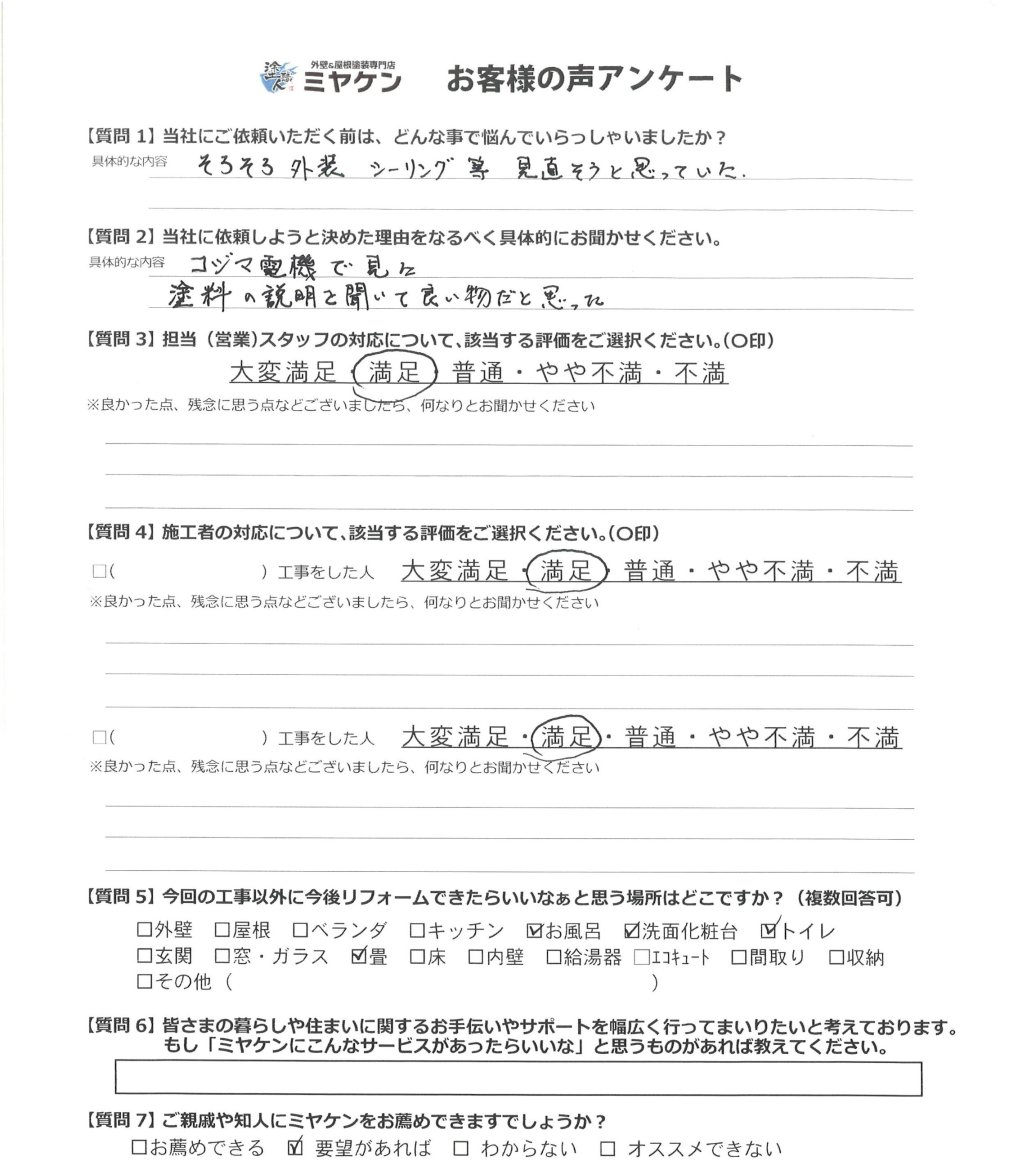 外壁&屋根塗装専門店
ミヤケン お客様の声アンケート
【質問 1】当社にご依頼いただく前は、どんな事で悩んでいらっしゃいましたか？
具体的な内容 そろそろ 外装 シーリング 等 見直そうと思っていた.
【質問 2】当社に依頼しようと決めた理由をなるべく具体的にお聞かせください。
具体的な内容 コジマ電機で見た
塗料の説明を聞いて良い物だと思った
【質問 3】担当（営業)スタッフの対応について、該当する評価をご選択ください。(〇印)
大変満足・満足・普通・やや不満・不満
※良かった点、残念に思う点などございましたら、何なりとお聞かせください
【質問 4】施工者の対応について、該当する評価をご選択ください。(〇印)
□( ) 工事をした人 大変満足・満足・普通・やや不満・不満
※良かった点、残念に思う点などございましたら、何なりとお聞かせください
□( ) 工事をした人 大変満足・満足・普通・やや不満・不満
※良かった点、残念に思う点などございましたら、何なりとお聞かせください
【質問 5】今回の工事以外に今後リフォームできたらいいなぁと思う場所はどこですか？（複数回答可）
□外壁 □屋根 □ベランダ □キッチン ☑お風呂 ☑洗面化粧台 ☑トイレ
□玄関 □窓・ガラス ☑畳 □床 □内壁 □給湯器 □ｴｺｷｭｰﾄ □間取り □収納
□その他（ ）
【質問 6】皆さまの暮らしや住まいに関するお手伝いやサポートを幅広く行ってまいりたいと考えております。
もし「ミヤケンにこんなサービスがあったらいいな」と思うものがあれば教えてください。
【質問 7】ご親戚や知人にミヤケンをお薦めできますでしょうか？
□お薦めできる ☑ 要望があれば □ わからない □ オススメできない